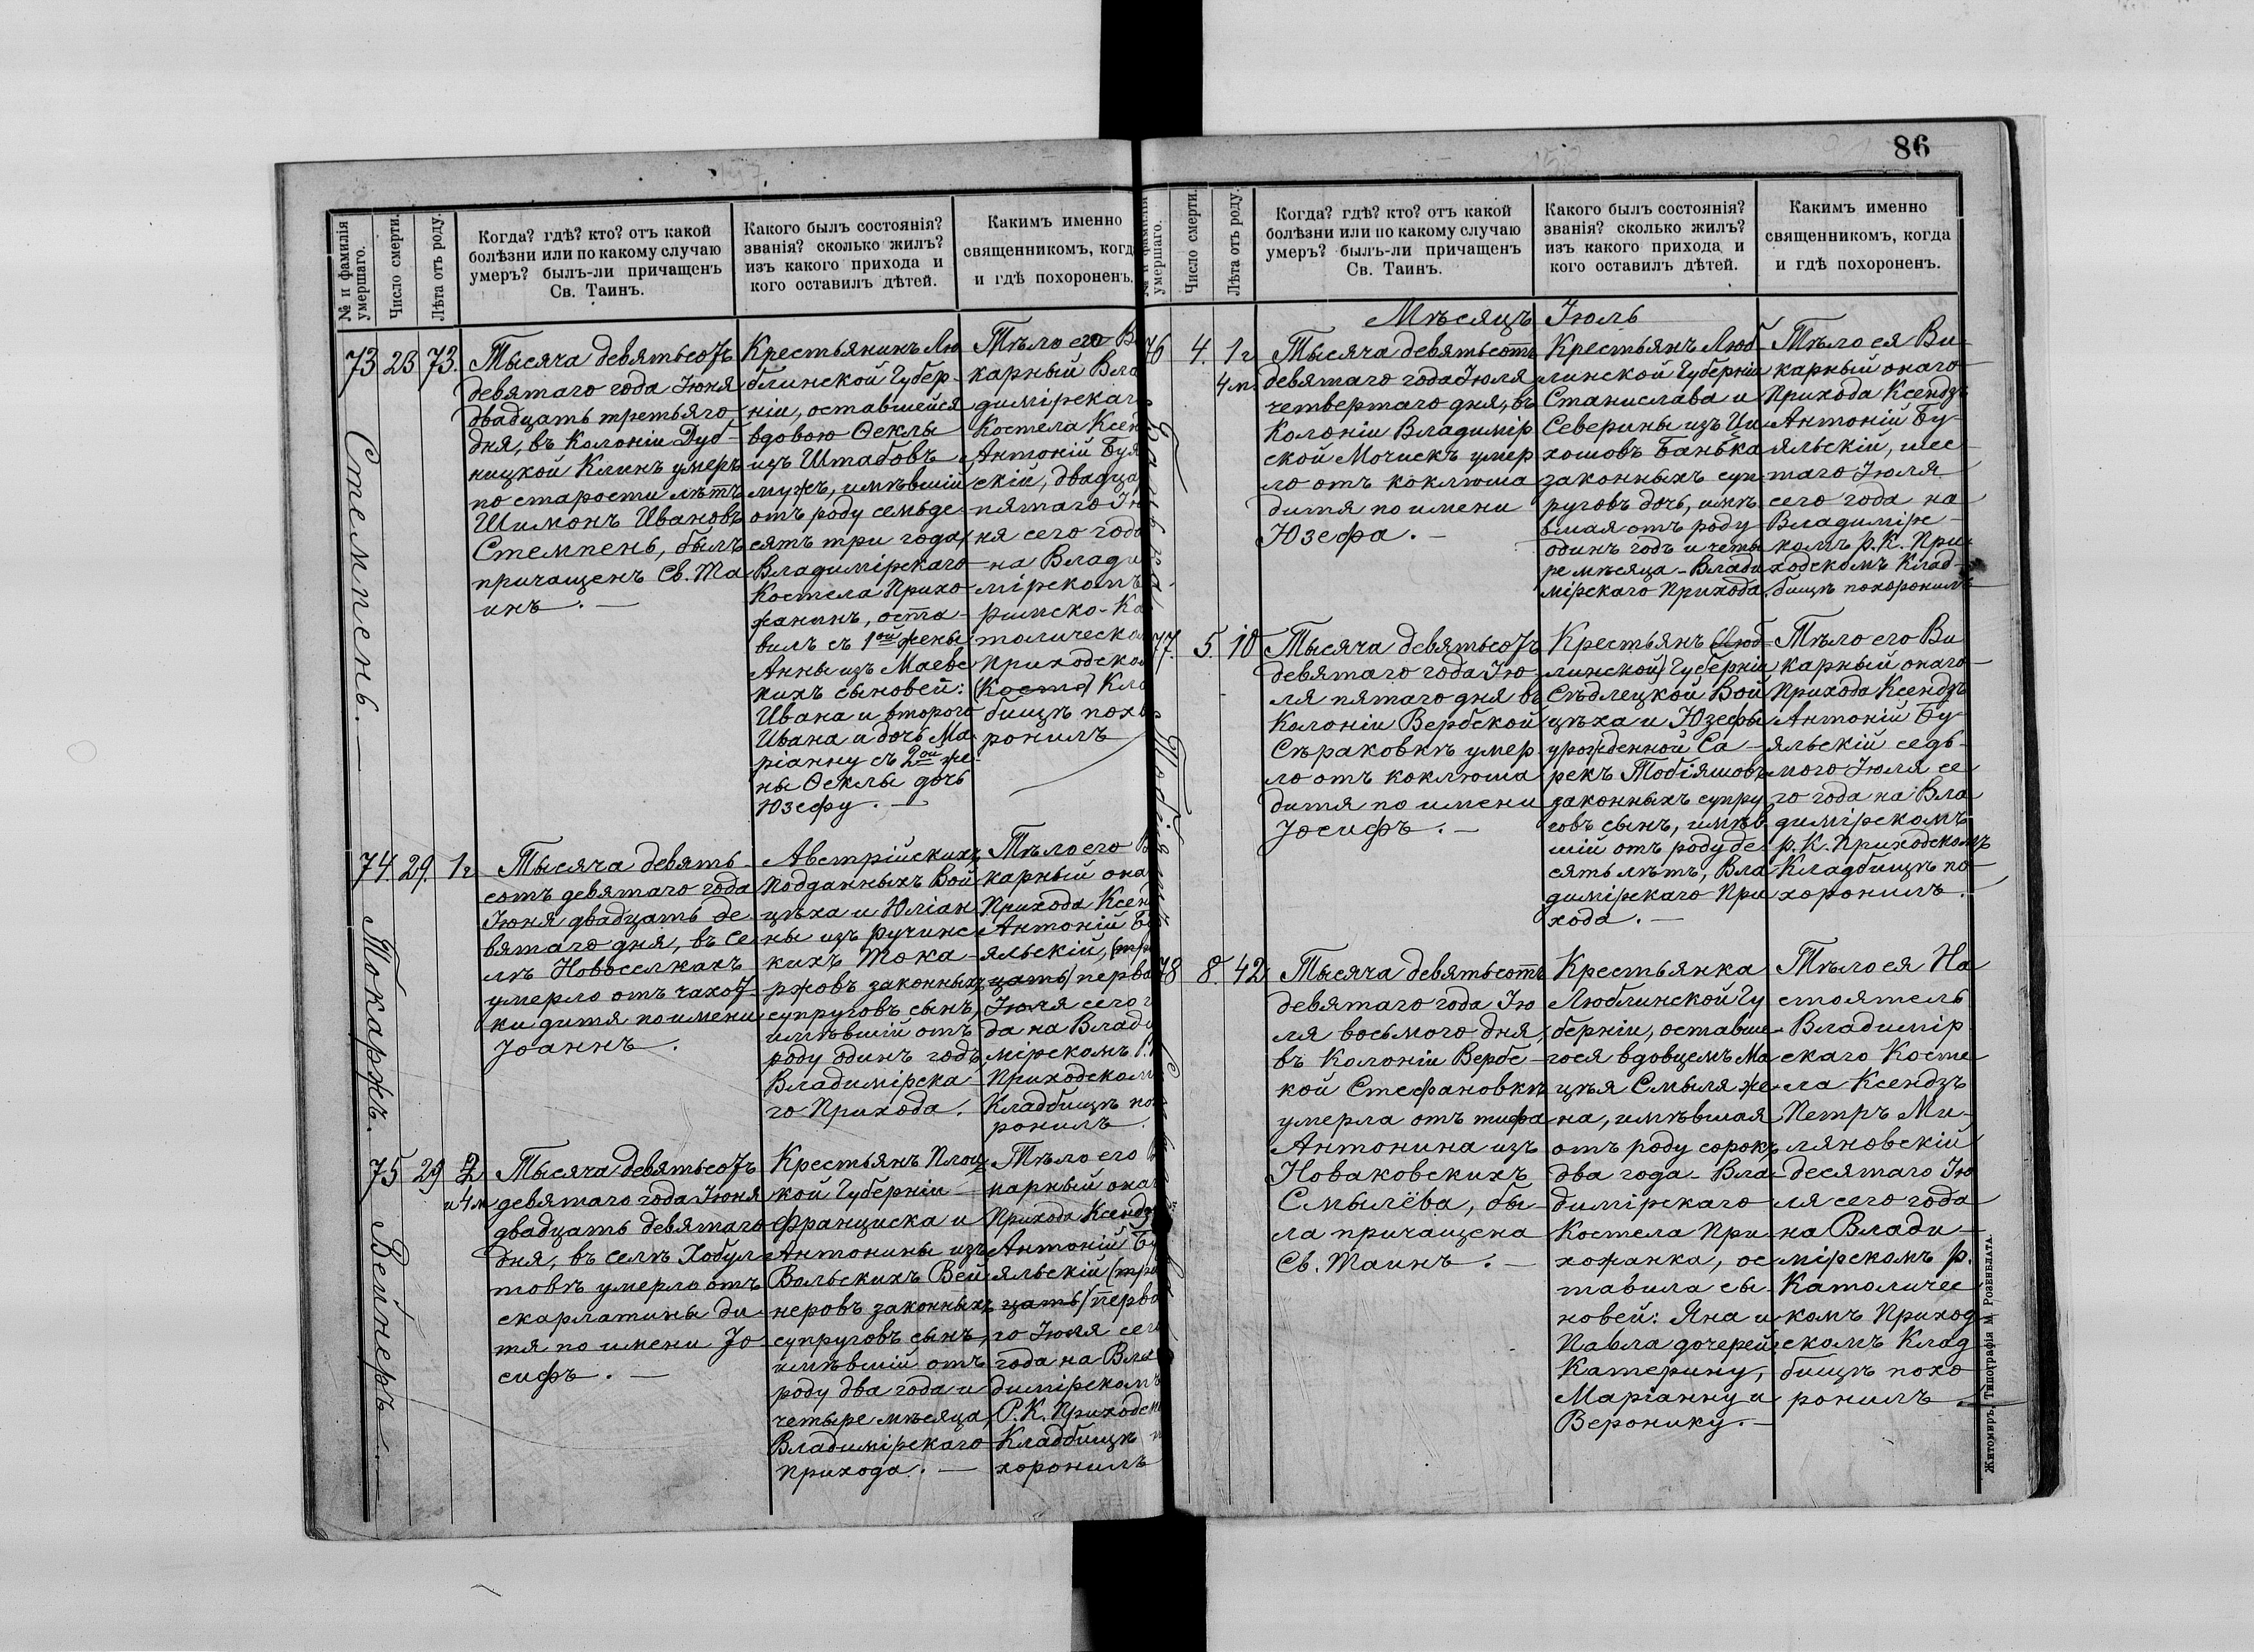 86
№ и фамилія умершаго.
Число смерти.
Лѣта отъ роду.
Когда? гдѣ? кто? отъ какой
болѣзни или по какому случаю
умеръ? былъ-ли причащенъ
Св. Таинъ.
Какого былъ состоянія?
званія? сколько жилъ?
изъ какого прихода и
кого оставилъ дѣтей.
Какимъ именно
священникомъ, когд
и гдѣ похороненъ.
73
23
73.
Стемпень.
Тысяча девятьсотъ
девятаго года Іюня
двадцать третьяго
дня, въ Колоніи Дуб-
ницкой Клинъ умеръ
по старости лѣтъ
Шимонъ Ивановъ
Стемпень, былъ
причащенъ Св. Та
инъ.
Крестьянинъ Лю
блинской Губер-
ніи, оставшейся
вдовою Ѳеклы
изъ Штабовъ
мужъ, имѣвшій
отъ роду семьде-
сятъ три года,
Владимірскаго
Костела Прихо-
жанинъ, оста-
вилъ съ 1ой жены
Анны изъ Маевс
кихъ сыновей:
Ивана и второго
Ивана и дочь Ма-
ріанну съ 2ой же-
ны Ѳеклы дочь
Юзефу.
Тѣло его В
карный Вла
димірскаг
Костела Ксен
Антоній Буя
скій, двадца
пятаго Ію
ня сего года
на Влади
мірскомъ
римско-Ка
толическо
Приходско
(Косте) Кла
бищѣ похо
ронилъ
74.
29.
1г
Токаржъ.
Тысяча девять-
сотъ девятаго года
Іюня двадцать де
вятаго дня, въ се
лѣ Новоселкахъ
умерло отъ чахот
ки дитя по имени
Іоаннъ.
Австрійскихъ
подданныхъ Вой
цѣха и Юліан
ны изъ Ручинс
кихъ Тока-
ржовъ законныхъ
супруговъ сынъ,
имѣвшій отъ
роду одинъ годъ
Владимірска-
го Прихода.
Тѣло его В
карный она
Прихода Ксен
Антоній Бу
яльскій, (три
цать) перва
Іюля сего г
да на Влади
мірскомъ Р.
Приходском
Кладбищѣ по
ронилъ.
75
29
2
и 4м
Вейнеръ.
Тысяча девятьсотъ
девятаго года Іюня
двадцать девятаго
дня, въ селѣ Хобул
товѣ умерло отъ
скарлатины ди-
тя по имени Іо-
сифъ.
Крестьянъ Плоц
кой Губерніи
Франциска и
Антонины изъ
Вольскихъ Вей
неровъ законныхъ
супруговъ сынъ,
имѣвшій отъ
роду два года и
четыре мѣсяца,
Владимірскаго
Прихода.
Тѣло его В
карный онаг
Прихода Ксендз
Антоній Бу
яльскій (три
цать) перва
го Іюля сего
года на Вла
димірскомъ
Р.К. Приходск
Кладбищѣ п
хоронилъ
№ и фамилія умершаго.
Число смерти.
Лѣта отъ роду.
Когда? гдѣ? кто? отъ какой
болѣзни или по какому случаю
умеръ? былъ-ли причащенъ
Св. Таинъ.
Какого былъ состоянія?
званія? сколько жилъ?
изъ какого прихода и
кого оставилъ дѣтей.
Какимъ именно
священникомъ, когда
и гдѣ похороненъ.
Мѣсяцъ Іюль
76
4.
1г
4м.
Тысяча девятьсотъ
девятаго года Іюля
четвертаго дня, въ
Колоніи Владимір
ской Мочискъ умер
ло отъ коклюша
дитя по имени
Юзефа.
Крестьянъ Люб-
линской Губерніи
Станислава и
Северины изъ Ци
хошовъ Банька
законныхъ суп
руговъ дочь, имѣ
вшая отъ роду
одинъ годъ и четы
ре мѣсяца - Влади
мірскаго Прихода.
Тѣло ея Ви-
карный онаго
Прихода Ксендзъ
Антоній Бу-
яльскій, шес
таго Іюля
сего года на
Владимірс-
комъ р. К. При-
ходскомъ Клад-
бищѣ похоронилъ
77.
5.
10
Тысяча девятьсотъ
девятаго года Ію-
ля пятаго дня въ
Колоніи Вербской
Сѣраковкѣ умер
ло отъ коклюша
дитя по имени
Іосифъ.
Крестьянъ (Люб-
линской) Губерніи
Сѣдлецкой Вой
цѣха и Юзефы
урожденной Са-
рекъ Тобіяшовъ
законныхъ супру
говъ сынъ, имѣв
шій отъ роду де
сять лѣтъ, Вла
димірскаго При
хода.
Тѣло его Ви
карный онаго
Прихода Ксендзъ
Антоній Бу-
яльскій седь-
мого Іюля се
го года на Вла
димірскомъ
р. К. Приходскомъ
Кладбищѣ по-
хоронилъ.
78
8.
42
Тысяча девятьсотъ
девятаго года Ію
ля восьмого дня,
въ Колоніи Вербс-
кой Стефановкѣ
умерла отъ тифа
Антонина изъ
Новаковскихъ
Смылёва, бы-
ла причащена
Св. Таинъ.
Крестьянка
Люблинской Гу
берніи, оставше-
гося вдовцемъ Ма
цѣя Смыля же-
на, имѣвшая
отъ роду сорокъ
два года - Вла-
димірскаго
Костела При
хожанка, ос
тавила сы
новей: Яна и
Павла дочерей
Катерину,
Маріанну и
Веронику.
Тѣло ея На
стоятель
Владимір
скаго Косте
ла Ксендзъ
Петръ Ми-
ляновскій
десятаго Ію
ля сего года
на Влади-
мірскомъ р.
Католичес
комъ Приход
скомъ Клад
бищѣ похо
ронилъ
Житомиръ, Типографія М. Розенблата.